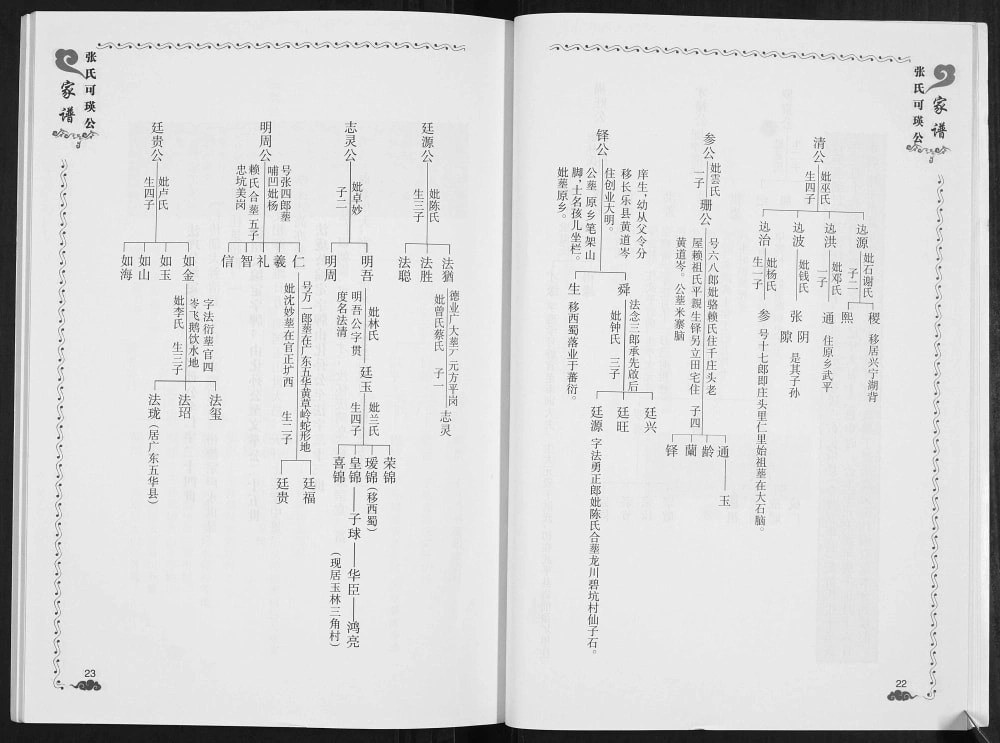 张氏可瑛公
家谱
清公
妣巫氏
生四子
远源
妣石谢氏
子二
稷
移居兴宁湖背
熙
远洪
妣邓氏
一子
通
住原乡武平
远波
妣钱氏
张
阴
隙
是其子孙
远治
妣杨氏
生一子
参
号十七郎即庄头里仁里始祖墓在大石脑。
参公
妣雲氏
一子
珊公
号六八郎妣骆赖氏住千庄头老
屋赖祖氏平親生铎另立田宅住
黄道岑。公墓米寨脑
子四
通
龄
蘭
铎
玉
铎公
庠生,幼从父令分
移长乐县黄道岑
住创业大明。
公墓原乡笔架山
脚,土名孩儿坐栏。
妣墓原乡。
舜
法念三郎承先啟后
妣钟氏
三子
廷兴
廷旺
廷源
字法勇正郎妣陈氏合墓龙川碧坑村仙子石。
生
移西蜀落业于蕃衍。
22
张氏可瑛公
家谱
廷源公
妣陈氏
生三子
法猶
法胜
法聪
德业广大墓广元方平岗
妣曾氏蔡氏
子一
志灵
志灵公
妣卓妙
子二
明吾
明周
妣林氏
明吾公字贯
度名法清
廷玉
妣兰氏
生四子
荣锦
瑗锦(移西蜀)
皇锦——子球——华臣——鸿亮
(现居玉林三角村)
喜锦
明周公
号张四郎墓
哺凹妣杨
赖氏合墓
忠坑美岗
五子
仁
羲
礼
智
信
号万一郎墓在广东五华黄草岭蛇形地
妣沈妙墓在官正圹西
生二子
廷福
廷贵
廷贵公
妣卢氏
生四子
如金
如玉
如山
如海
字法衍墓官四
岑飞鹅饮水地
妣李氏
生三子
法玺
法玿
法珑(居广东五华县)
23